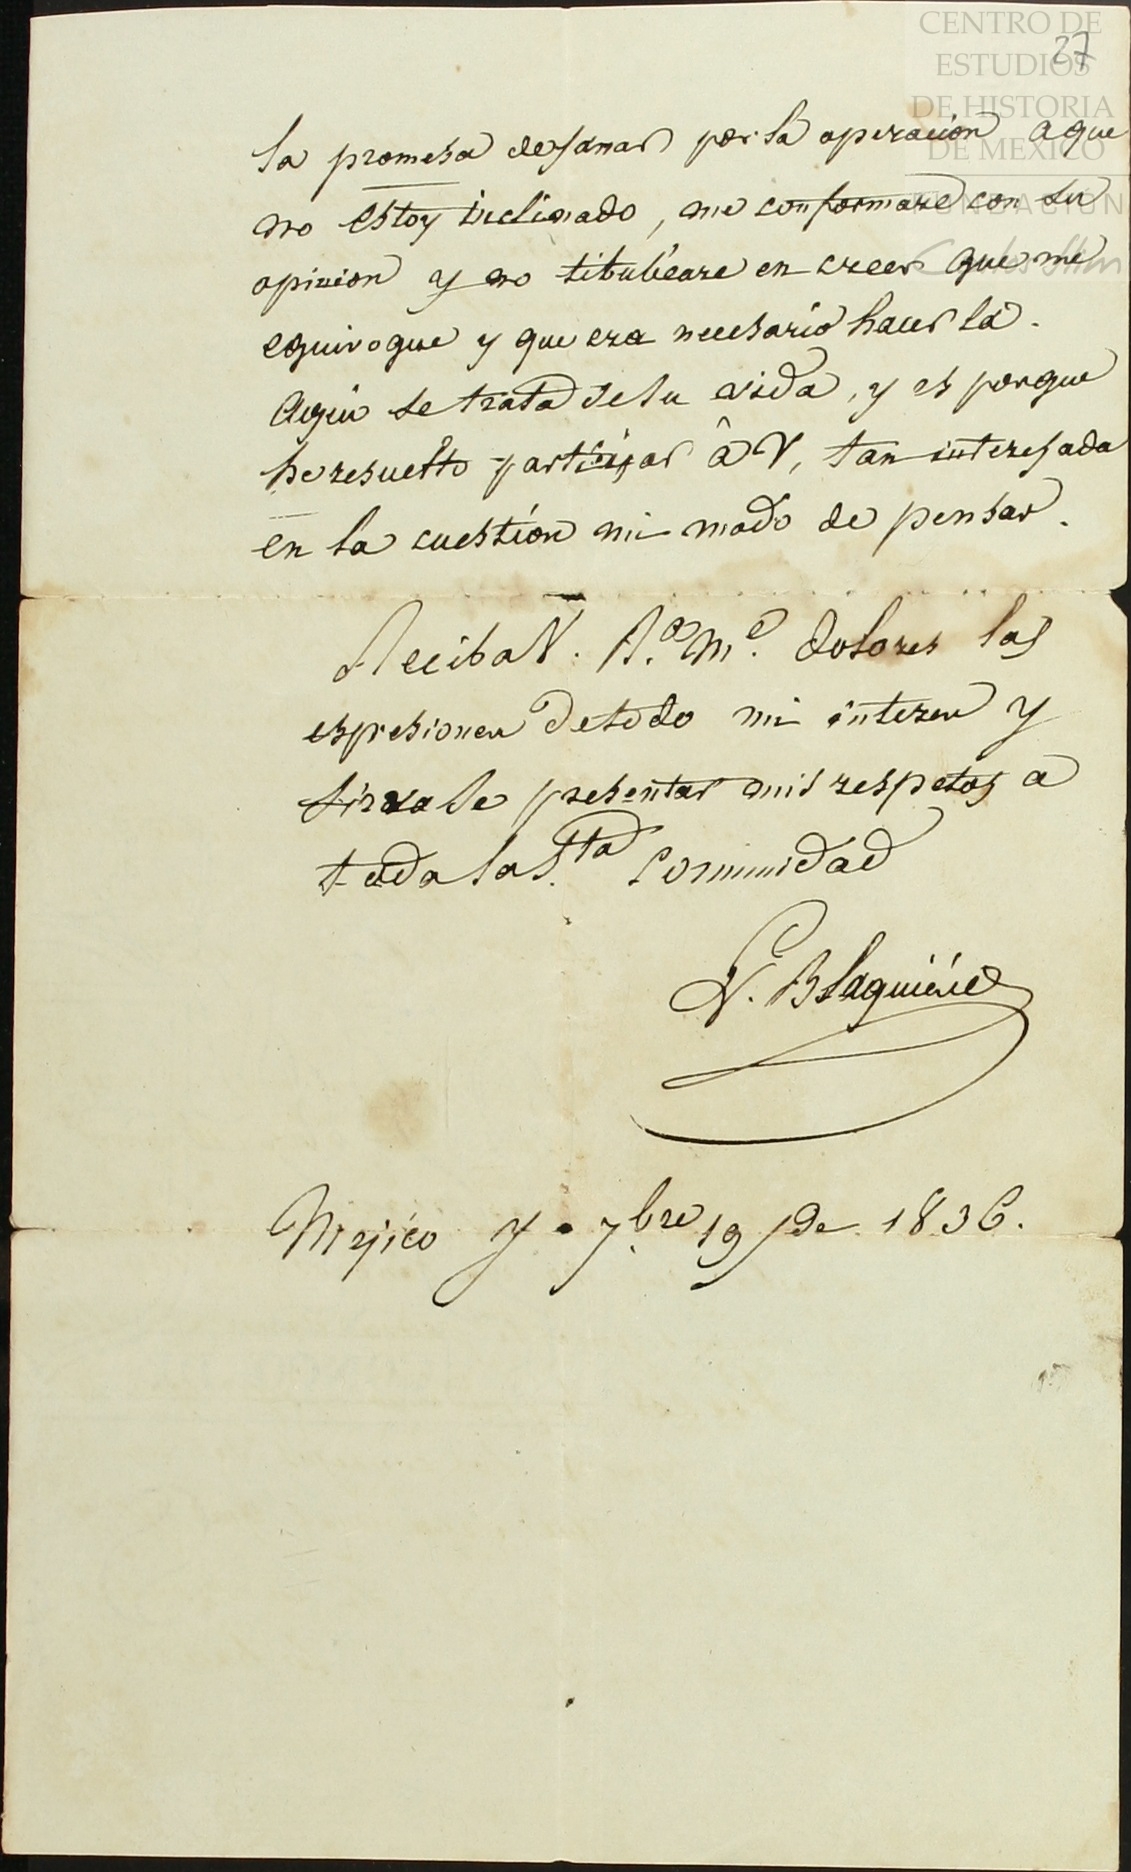 CENTRO DE
ESTUDIOS
DE HISTORIA
DE MEXICO
FUNDACIÓN
Carlos Slim
27
la promesa de sanar por la operacion a que
no estoy inclinado, me conformare con su
opinion y no titubeare en creer que me
equivoque y que era necesario hacer la.
Aqui se trata de su vida, y es porque
he resuelto participar â V, tan interesada
en la cuestion mi modo de pensar.
Reciba V. R.a M.e Dolores las
espresiones de todo mi interes y
sirvase presentar mis respetos a
toda la S.ta Comunidad
V. Blaquiére
Mejico y 7.bre 19 de 1836.